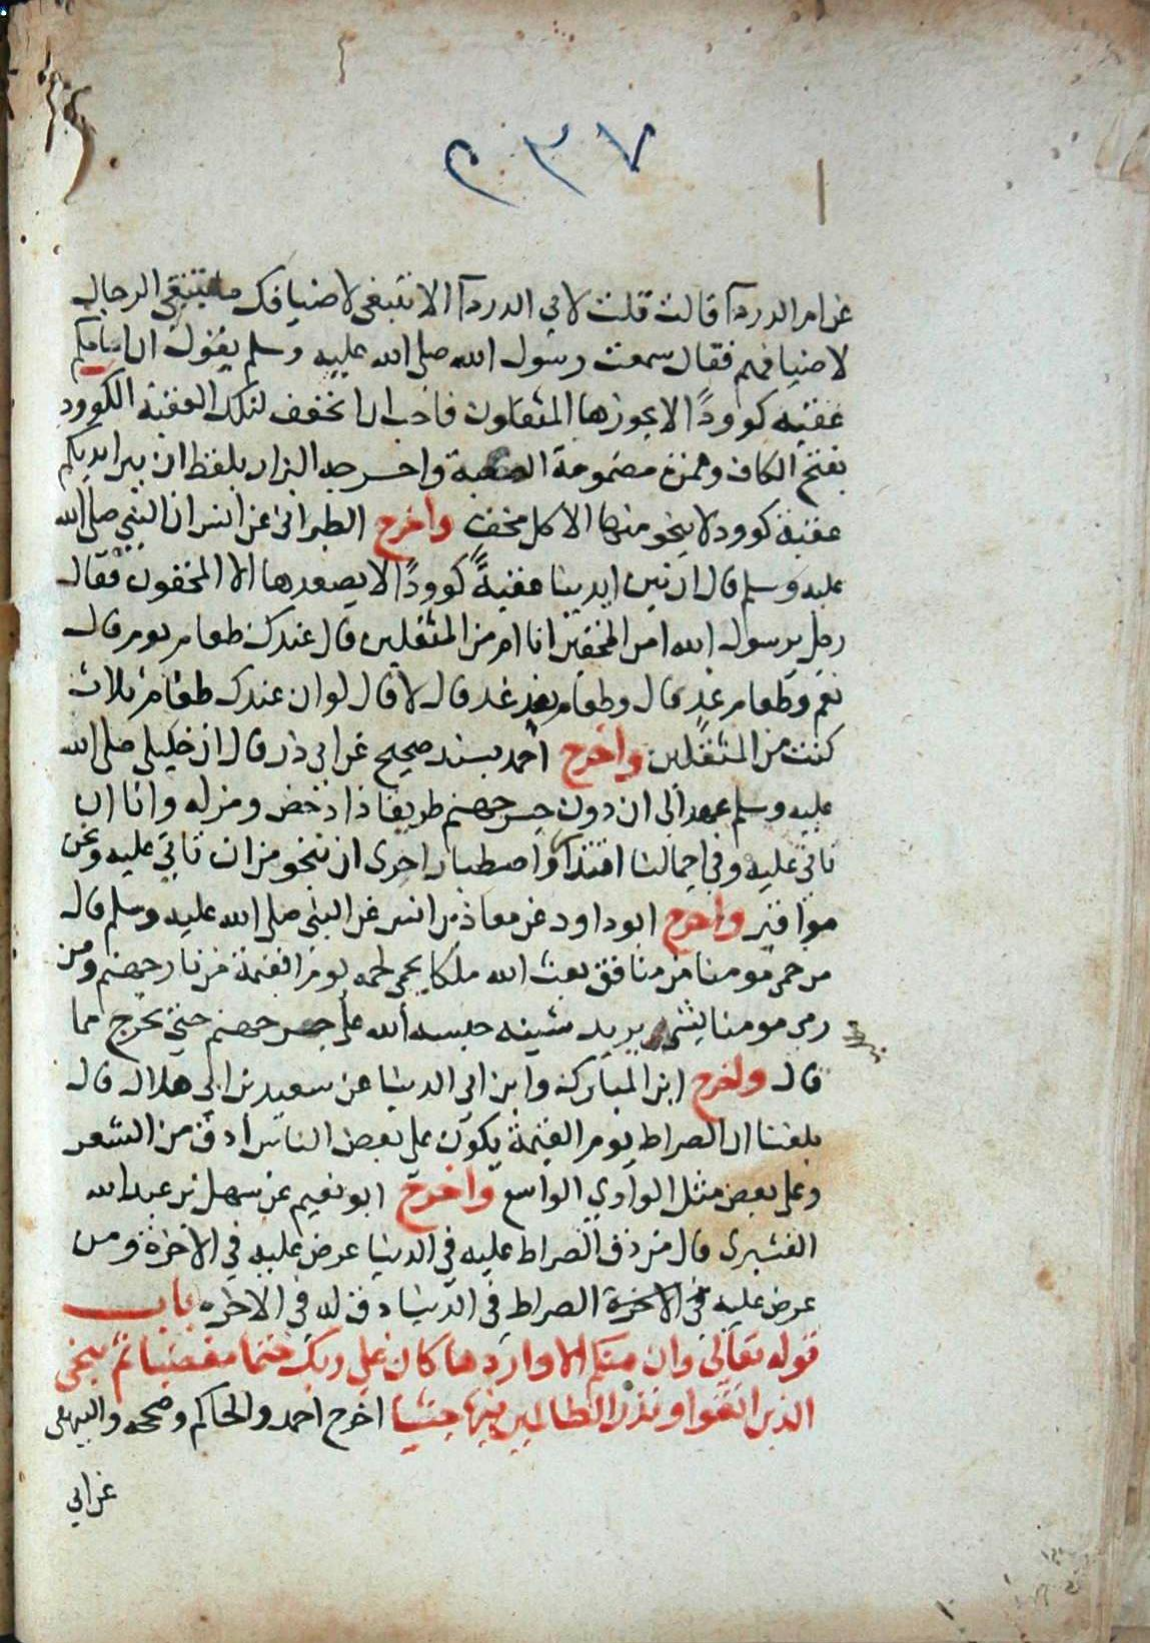 ٢٣٧
عن ام الدردآ قالت قلت لابي الدردآ الا تبتغي لاضيافك ما يبتغي الرجال
لاضيافهم فقال سمعت رسول الله صلى الله عليه وسلم يقول ان امامكم
عقبه كوودًا لا يجوزها المثقلون فاحب ان اتخفف لتلك العقبة الكوود
بفتح الكاف وهمزة مضمومة الصعبة واخرجه البزار بلفظ ان بين ايديكم
عقبة كوود لا ينجو منها الا كل مخف واخرج الطبراني عن انس ان النبي صلى الله
عليه وسلم قال ان بين ايدينا عقبةً كوودًا لا يصعدها الا المخفون فقال
رجل يرسول الله امن المخفين انا ام من المثقلين قال عندك طعام يوم قال
نعم وطعام غدٍ قال وطعام بعد غد قال لا قال لو ان عندك طعام ثلاث
كنت من المثقلين واخرج احمد بسند صحيح عن ابي ذر قال ان خليلي صلى الله
عليه وسلم عهد الى ان دون جسر جهنم طريقا ذا دخض ومزله وانا ان
ناتي عليه وفي احمالنا اقتدار واصطبار احرى ان ننجو من ان ناتي عليه ونحن
مواقير واخرج ابو داود عن معاذ بن انس عن النبي صلى الله عليه وسلم قال
من حمى مومنا من منافق بعث الله ملكا يحمى لحمه يوم القيمة من نار جهنم ومن
رمى مومنا بشي يريد شينه حبسه الله على جسر جهنم حتى يخرج مما
قال واخرج ابن المبارك وابن ابي الدنيا عن سعيد بن ابي هلال قال
بلغنا ان الصراط يوم القيمة يكون على بعض الناس أدق من الشعر
وعلى بعض مثل الوادي الواسع واخرج ابو نعيم عن سهل بن عبدالله
القشيرى قال من دق الصراط عليه في الدنيا عرض عليه في الاخرة ومن
عرض عليه في الاخرة الصراط في الدنيا دق له في الاخره باب
قوله تعالى وان منكم الا واردها كان على ربك حتما مقضيا ثم ننجى
الذين اتقوا ونذر الظالمين فيها جثيا اخرج احمد والحاكم وصححه والبيهقي
عن ابي